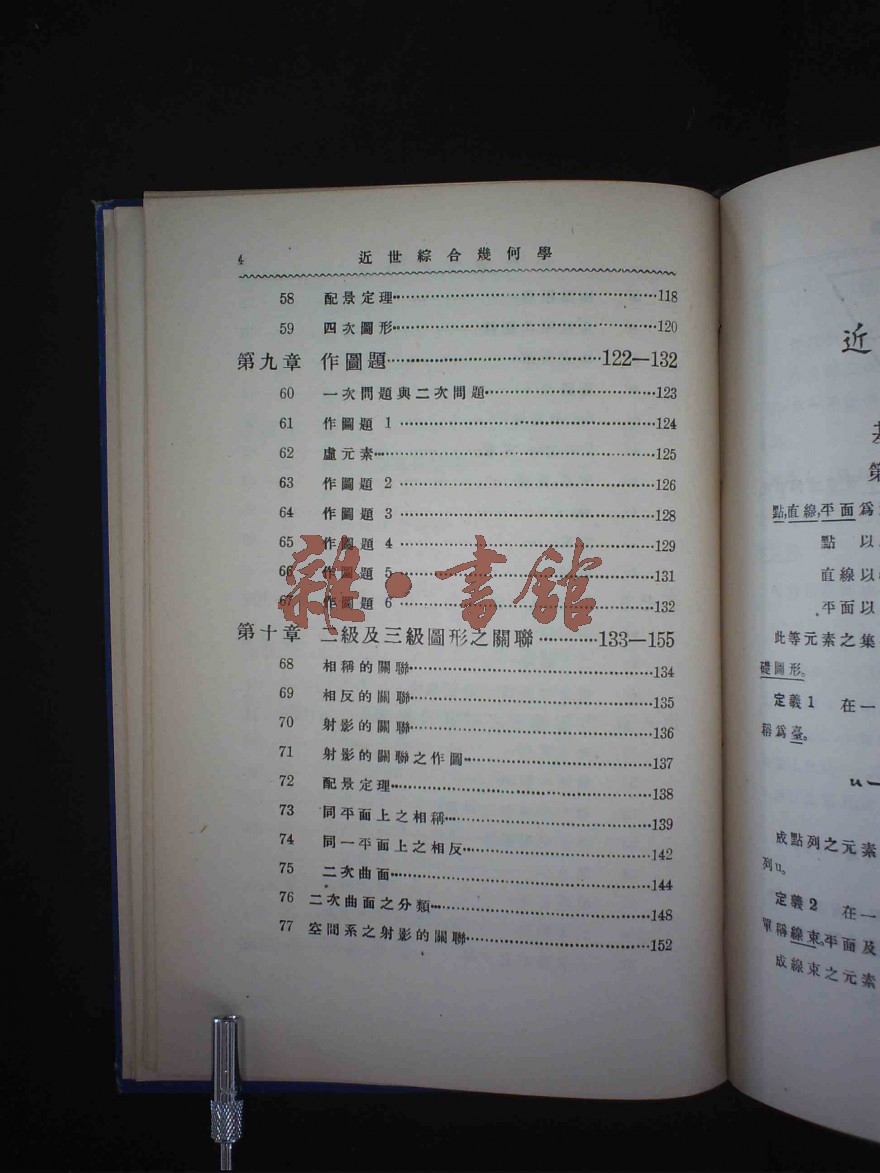 4 近世綜合幾何學
58 配景定理……118
59 四次圖形……120
第九章 作圖題……122—132
60 一次問題與二次問題……123
61 作圖題 1……124
62 虛元素……125
63 作圖題 2……126
64 作圖題 3……128
65 作圖題 4……129
66 作圖題 5……131
67 作圖題 6……132
第十章 二級及三級圖形之關聯……133—155
68 相稱的關聯……134
69 相反的關聯……135
70 射影的關聯……136
71 射影的關聯之作圖……137
72 配景定理……138
73 同平面上之相稱……139
74 同一平面上之相反……142
75 二次曲面……144
76 二次曲面之分類……148
77 空間系之射影的關聯……152
雜·書館
近
第
點,直線,平面爲
點 以
直線以
平面以
此等元素之集
礎圖形。
定義1 在一
稱爲臺。
u—
成點列之元素
列u。
定義2 在一
單稱線束。平面及
成線束之元素